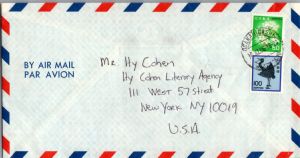 BY AIR MAIL
PAR AVION
Mr. Hy Cohen
Hy Cohen Literary Agency
111 West 57 Street
New York NY 10019
U.S.A.
60
100